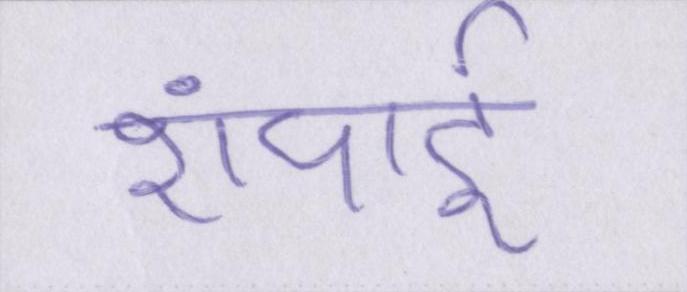 शंपाई